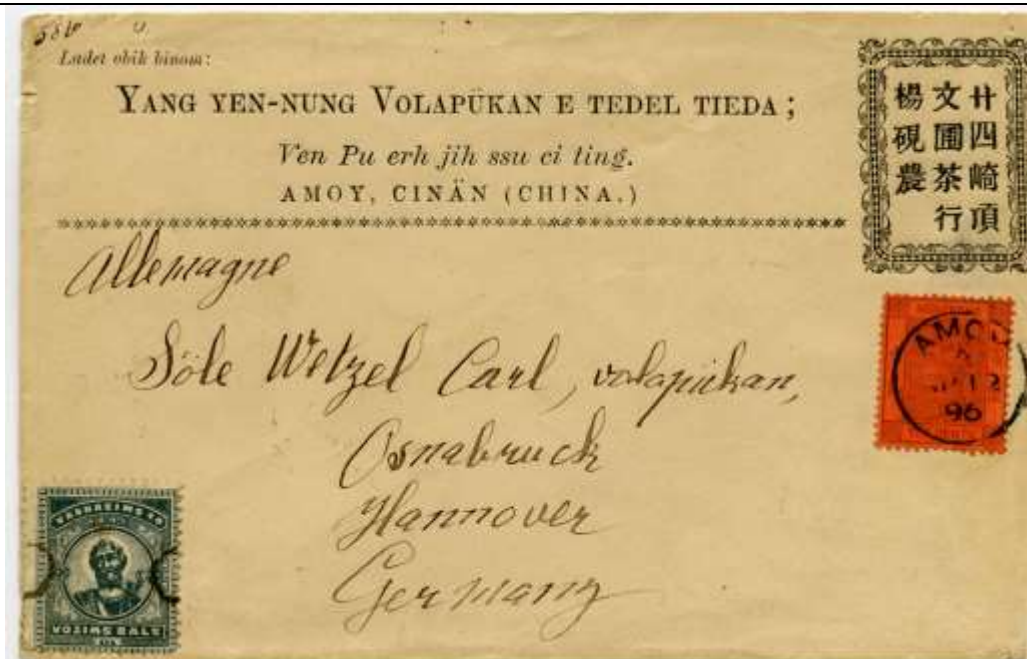 Ladet obik binom:
YANG YEN-NUNG VOLAPÜKAN E TEDEL TIEDA;
Ven Pu erh jih ssu ci ting.
AMOY, CINÄN (CHINA.)
廿四崎頂
文圃茶行
楊硯農
Allemagne
AMOY
96
Söle Wetzel Carl, volapükan,
Osnabruck
Hannover
Germany
VOZIMS BALE